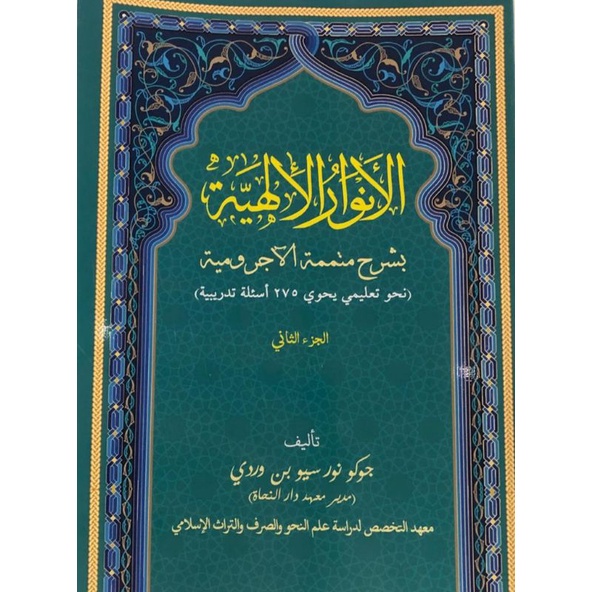 الأنوار الإلهية
بشرح متممة الآجرومية
(نحو تعليمي يحوي ٢٧٥ أسئلة تدريبية)
الجزء الثاني
تأليف
جوكو نور سيو بن وردي
(مدير معهد دار النحاة)
معهد التخصص لدراسة علم النحو والصرف والتراث الإسلامي